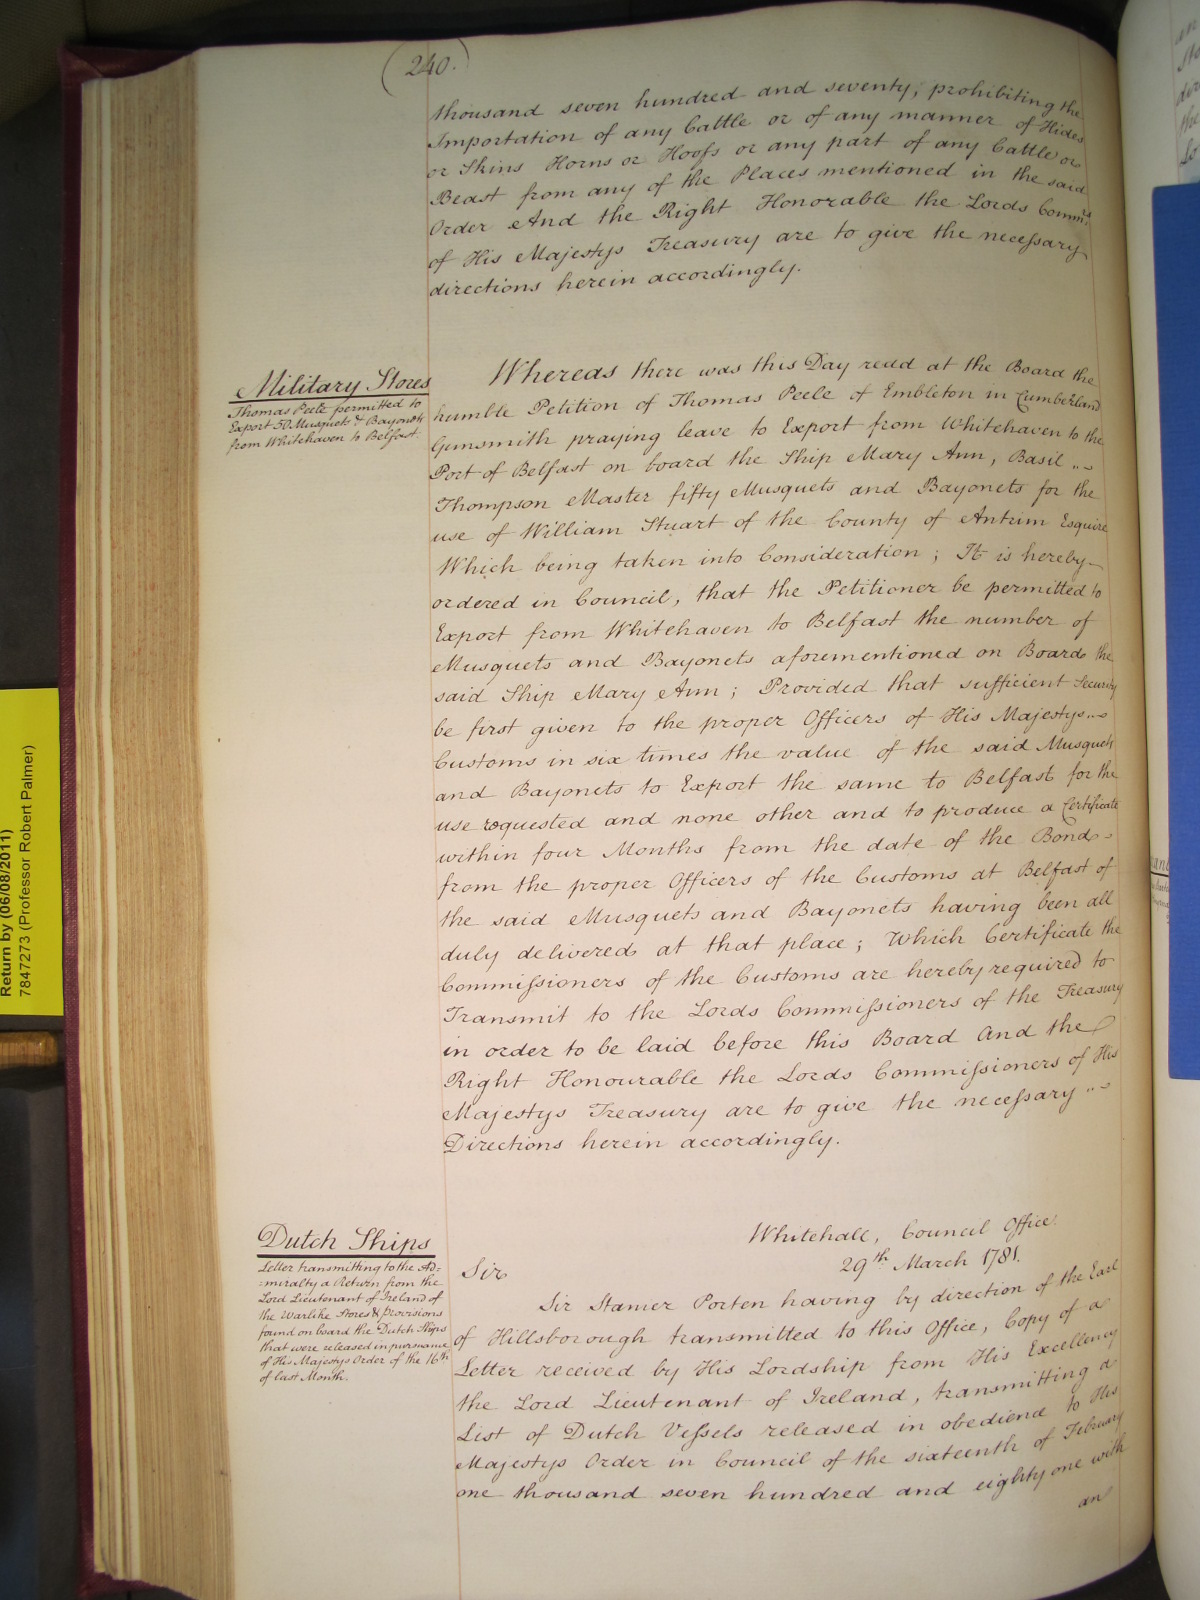 240.
thousand seven hundred and seventy, prohibiting the
Importation of any Cattle or of any manner of Hides
or Skins Horns or Hoofs or any part of any Cattle or
Beast from any of the Places mentioned in the said
Order And the Right Honorable the Lords Commrs
of His Majestys Treasury are to give the necessary
directions herein accordingly.
Military Stores
Thomas Peele permitted to
Export 50 Musquets & Bayonets
from Whitehaven to Belfast.
Whereas there was this Day read at the Board the
humble Petition of Thomas Peele of Embleton in Cumberland
Gunsmith praying leave to Export from Whitehaven to the
Port of Belfast on board the Ship Mary Ann, Basil
Thompson Master fifty Musquets and Bayonets for the
use of William Stuart of the County of Antrim Esquire
Which being taken into Consideration; It is hereby
ordered in Council, that the Petitioner be permitted to
Export from Whitehaven to Belfast the number of
Musquets and Bayonets aforementioned on Board the
said Ship Mary Ann; Provided that sufficient Security
be first given to the proper Officers of His Majestys
Customs in six times the value of the said Musquets
and Bayonets to Export the same to Belfast for the
use requested and none other and to produce a Certificate
within four Months from the date of the Bond
from the proper Officers of the Customs at Belfast of
the said Musquets and Bayonets having been all
duly delivered at that place; Which Certificate the
Commissioners of the Customs are hereby required to
Transmit to the Lords Commissioners of the Treasury
in order to be laid before this Board And the
Right Honourable the Lords Commissioners of His
Majestys Treasury are to give the necessary
Directions herein accordingly.
Dutch Ships
Letter transmitting to the Ad=
=miralty a Return from the
Lord Lieutenant of Ireland of
the Warlike Stores & provisions
found on board the Dutch Ships
that were released in pursuance
of His Majestys Order of the 16th
of last Month.
Whitehall, Council Office
29th March 1781.
Sir
Sir Stanier Porten having by direction of the Earl
of Hillsborough transmitted to this Office, Copy of a
Letter received by His Lordship from His Excellency
the Lord Lieutenant of Ireland, transmitting a
List of Dutch Vessels released in obedience to His
Majestys Order in Council of the sixteenth of February
one thousand seven hundred and eighty one with
an
Return by (06/08/2011)
7847273 (Professor Robert Palmer)